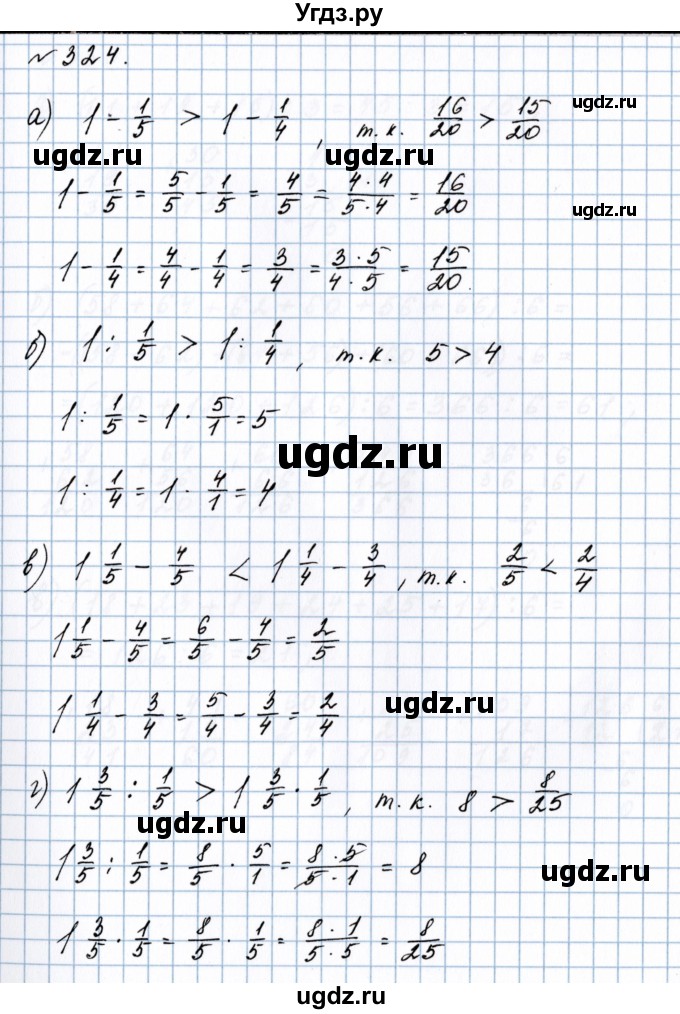 Угдз.ру
№ 324.
а) 1 - 1/5 > 1 - 1/4, т.к. 16/20 > 15/20
ugdz.ru
ugdz.ru ugdz.ru
1 - 1/5 = 5/5 - 1/5 = 4/5 = 4·4/5·4 = 16/20
ugdz.ru
1 - 1/4 = 4/4 - 1/4 = 3/4 = 3·5/4·5 = 15/20.
б) 1 : 1/5 > 1 : 1/4, т.к. 5 > 4
1 : 1/5 = 1 · 5/1 = 5
ugdz.ru
1 : 1/4 = 1 · 4/1 = 4
в) 1 1/5 - 4/5 < 1 1/4 - 3/4, т.к. 2/5 < 2/4
1 1/5 - 4/5 = 6/5 - 4/5 = 2/5
1 1/4 - 3/4 = 5/4 - 3/4 = 2/4
ugdz.ru
г) 1 3/5 : 1/5 > 1 3/5 · 1/5, т.к. 8 > 8/25
ugdz.ru
1 3/5 : 1/5 = 8/5 · 5/1 = 8·5/5·1 = 8
ugdz.ru
1 3/5 · 1/5 = 8/5 · 1/5 = 8·1/5·5 = 8/25
ugdz.ru